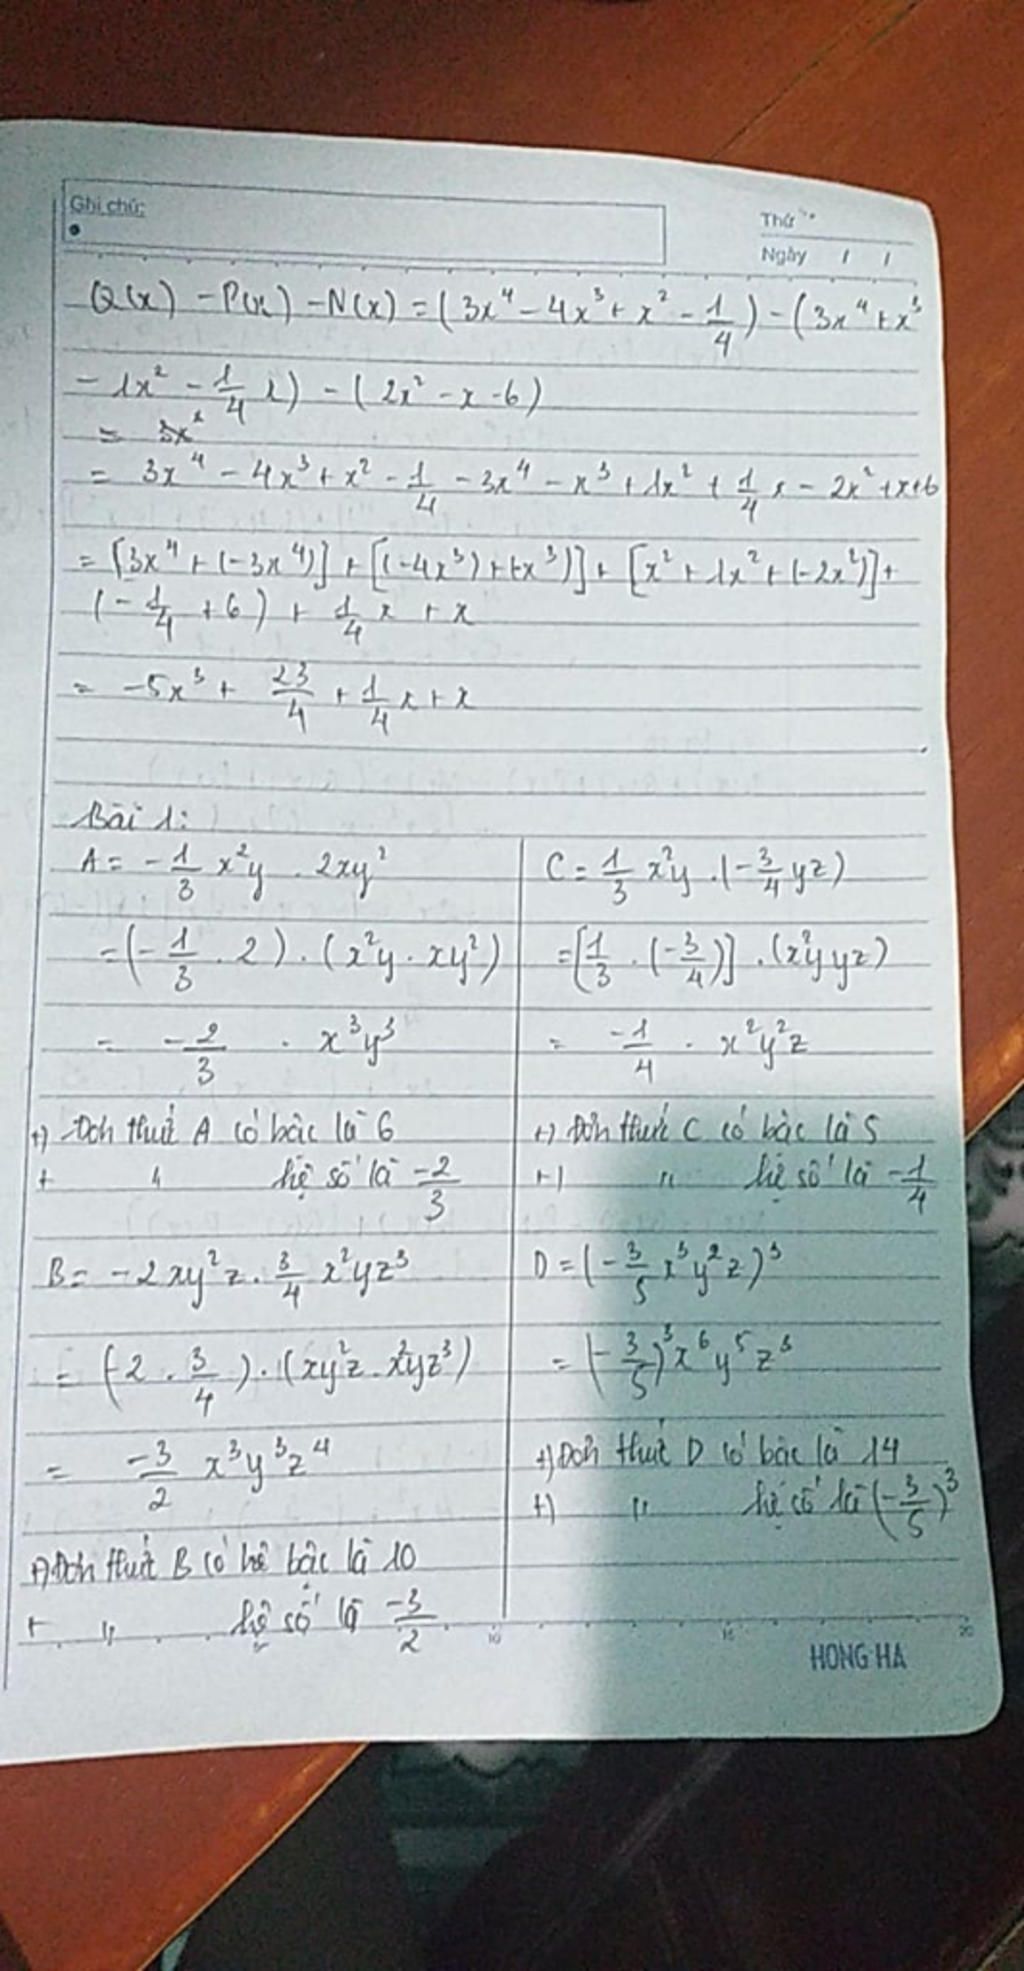 Ghi chú:
Thứ
Ngày / /
Q(x) - P(x) - N(x) = (3x⁴ - 4x³ + x² - 1/4) - (3x⁴ + x³
- 1x² - 1/4 x) - (2x² - x - 6)
= 3x²
= 3x⁴ - 4x³ + x² - 1/4 - 3x⁴ - x³ + 1x² + 1/4 x - 2x² + x + 6
= [3x⁴ + (-3x⁴)] + [(-4x³) + (-x³)] + [x² + 1x² + (-2x²)] +
(-1/4 + 6) + 1/4 x + x
= -5x³ + 23/4 + 1/4 x + x
Bài 1:
A = -1/3 x²y . 2xy²
= (-1/3 . 2) . (x²y . xy²)
= -2/3 . x³y³
+) Đơn thức A có bậc là 6
+ " hệ số là -2/3
B = -2xy²z . 3/4 x²yz³
= (-2 . 3/4) . (xy²z . x²yz³)
= -3/2 x³y³z⁴
+) Đơn thức B có hê bậc là 10
+ " hệ số là -3/2
C = 1/3 x²y . (-3/4 yz)
= [1/3 . (-3/4)] . (x²y yz)
= -1/4 . x²y²z
+) Đơn thức C có bậc là 5
+) " hệ số là -1/4
D = (-3/5 x³y²z)³
= (-3/5)³ x⁶y⁵z³
+) Đơn thức D có bậc là 14
+) " hệ số là (-3/5)³
10 15 20
HONG HA